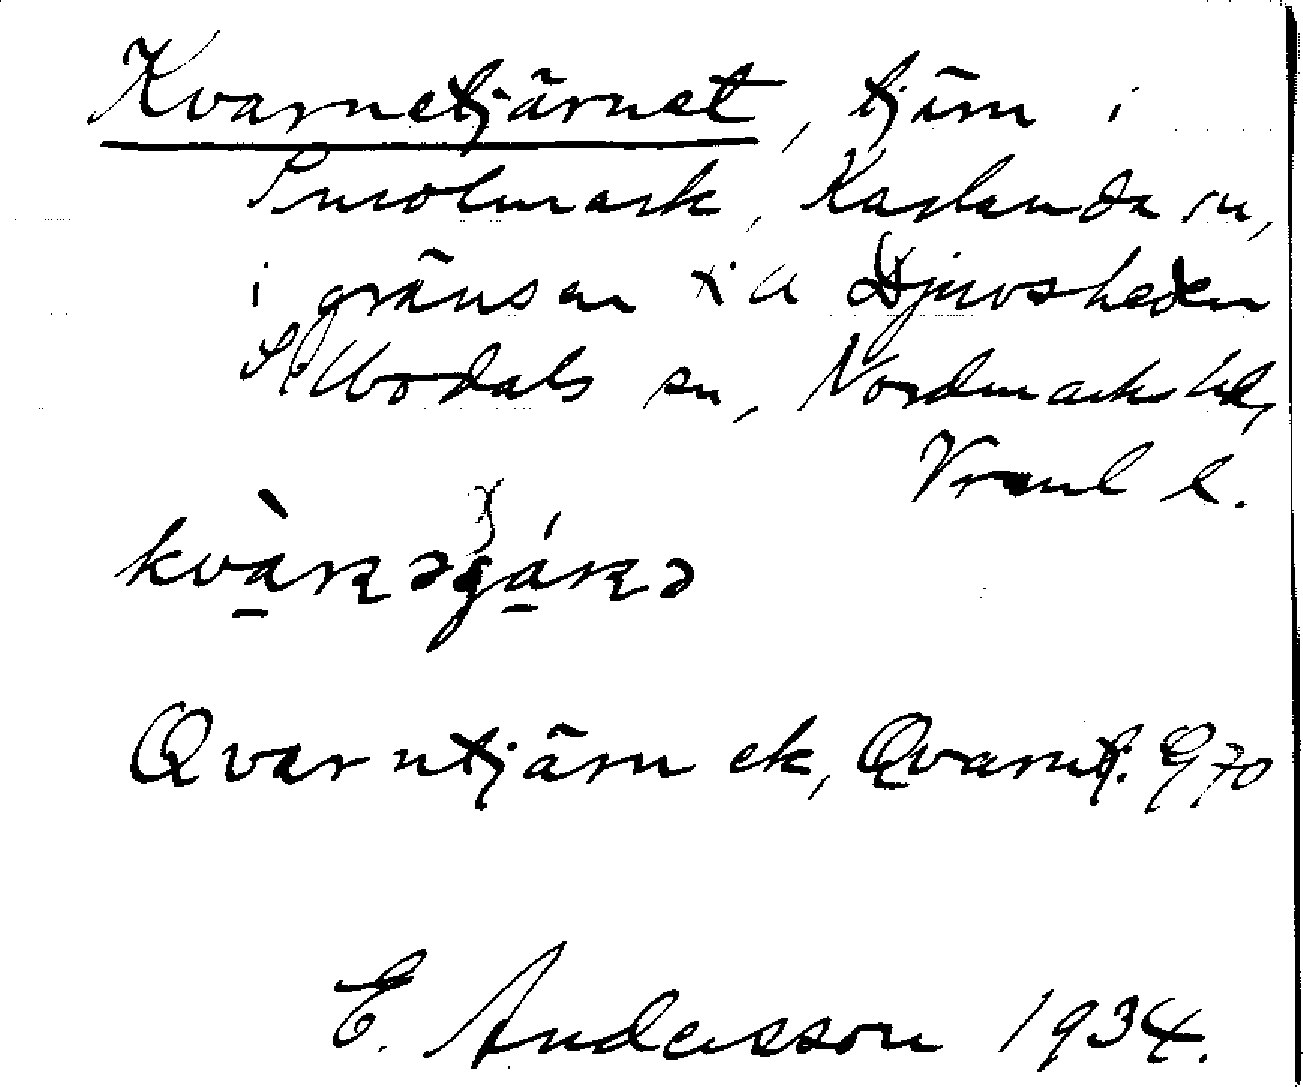 Kvarnetjärnet, tjärn i
Smolmark, Karlanda sn,
i gränsen till Djuvsheden
Sillbodals sn, Nordmarks hd,
Vrml l.
Qvarntjärn ek, Qvarntj. G 70
E. Andersson 1934.